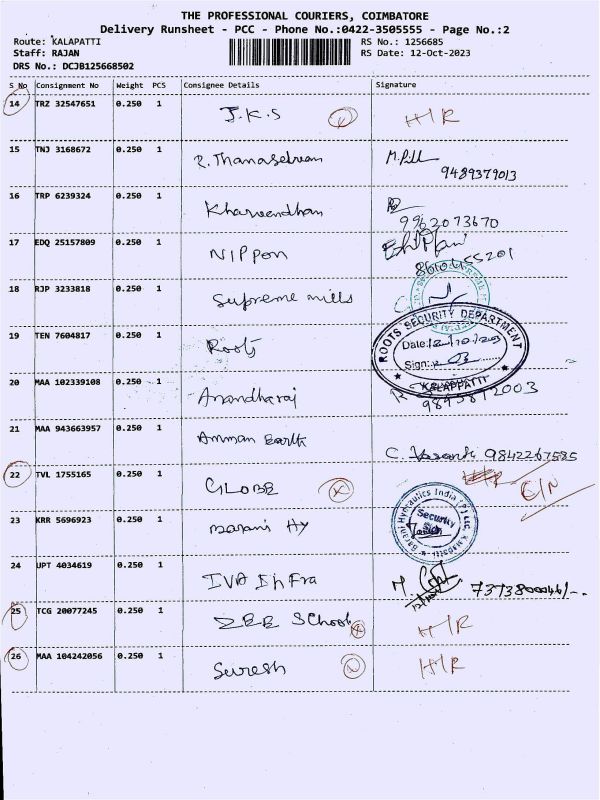 THE PROFESSIONAL COURIERS, COIMBATORE
Delivery Runsheet - PCC - Phone No.:0422-3505555 - Page No.:2
Route: KALAPATTI RS No.: 1256685
Staff: RAJAN RS Date: 12-Oct-2023
DRS No.: DCJB125668502
S No Consignment No Weight PCS Consignee Details Signature
14 TRZ 32547651 0.250 1 J.K.S H/R
15 TNJ 3168672 0.250 1 R. Thanaselvam
9489379013
16 TRP 6239324 0.250 1 Kharvendhan
9962073670
17 EDQ 25157809 0.250 1 NIPPON
18 RJP 3233818 0.250 1 Supreme mills
19 TEN 7604817 0.250 1 Roots
ROOTS SECURITY DEPARTMENT
Date: 12/10/2023
Sign:
KALAPPATTI
20 MAA 102339108 0.250 1 Anandharaj
21 MAA 943663957 0.250 1 Amman Earth
C. Vasanth 9842267585
22 TVL 1755165 0.250 1 GLOBE H/R C/N
23 KRR 5696923 0.250 1 Barani Hy
Barani Hydraulics India (P) Ltd.
Security
Sign
24 UPT 4034619 0.250 1 IVA Infra
12/10/23
25 TCG 20077245 0.250 1 ZEE School H/R
26 MAA 104242056 0.250 1 Suresh H/R